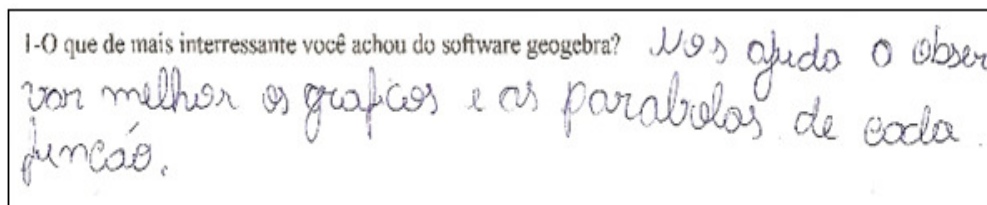 1-O que de mais interressante você achou do software geogebra? Nos ajuda a obser
var melhor os graficos e as parabolas de cada
funcáo.